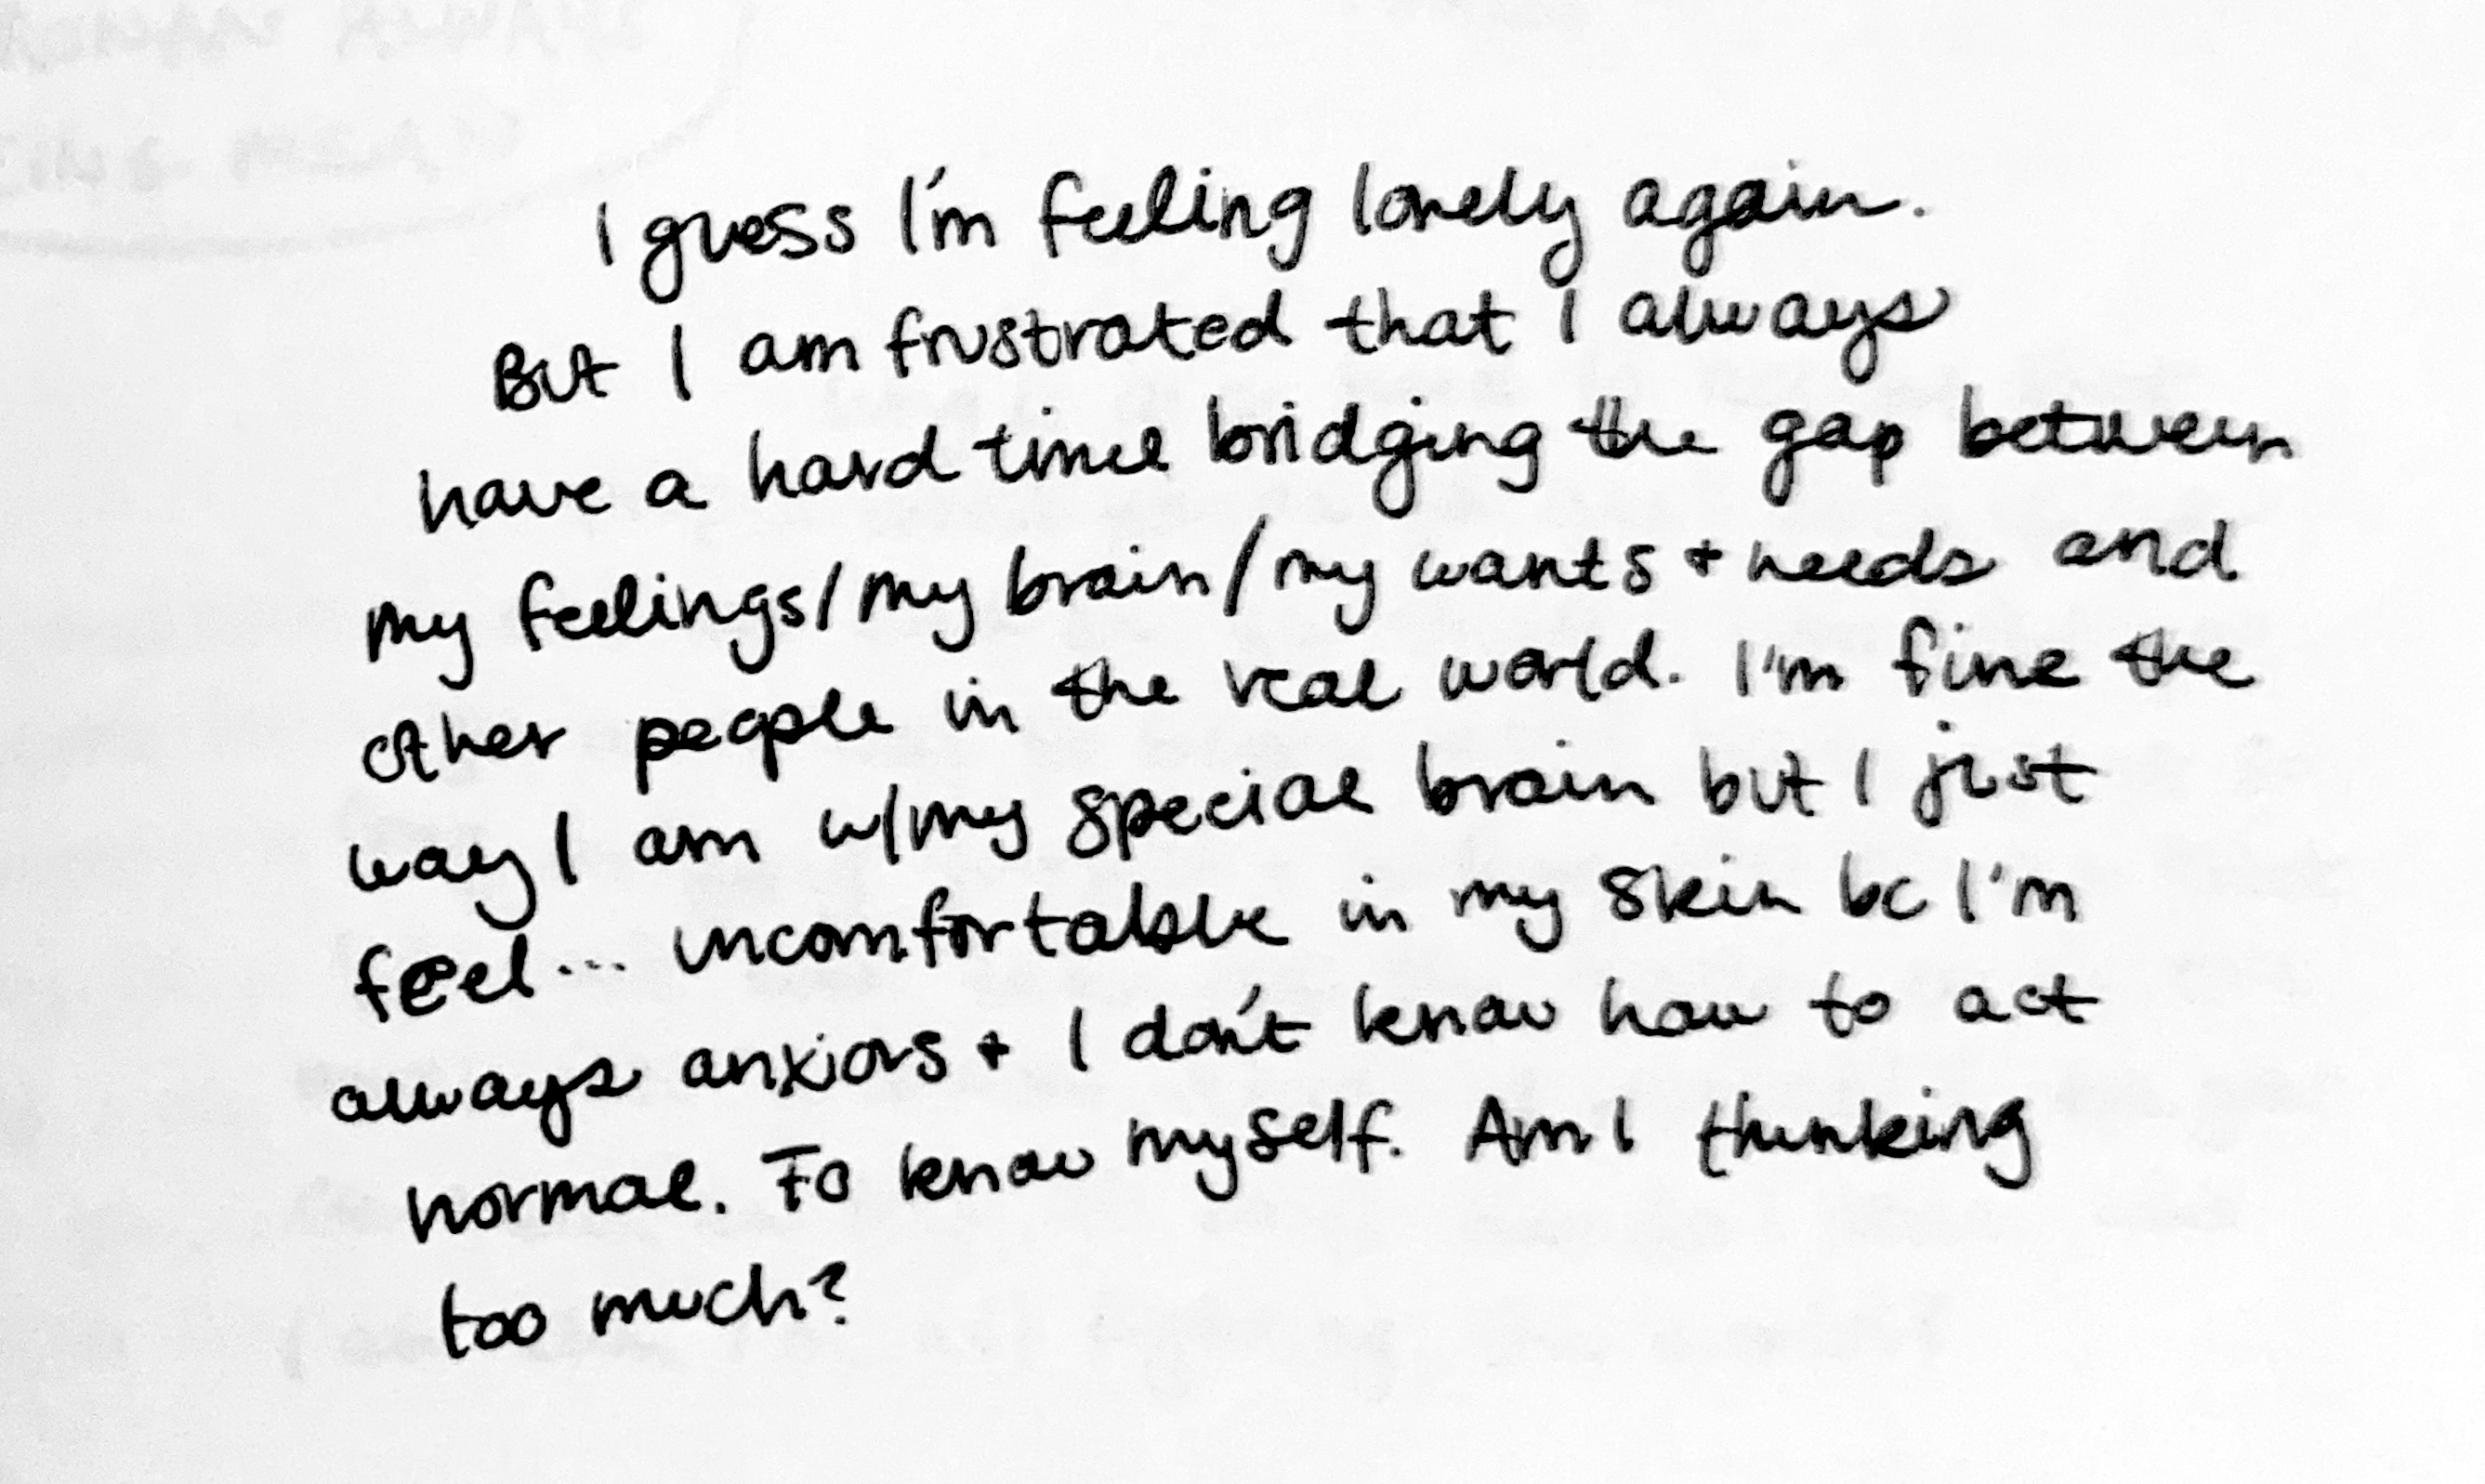 I guess I'm feeling lonely again.
But I am frustrated that I always
have a hard time bridging the gap between
my feelings/my brain/my wants + needs and
other people in the real world. I'm fine the
way I am w/my special brain but I just
feel... uncomfortable in my skin bc I'm
always anxious + I don't know how to act
normal. To know myself. Am I thinking
too much?